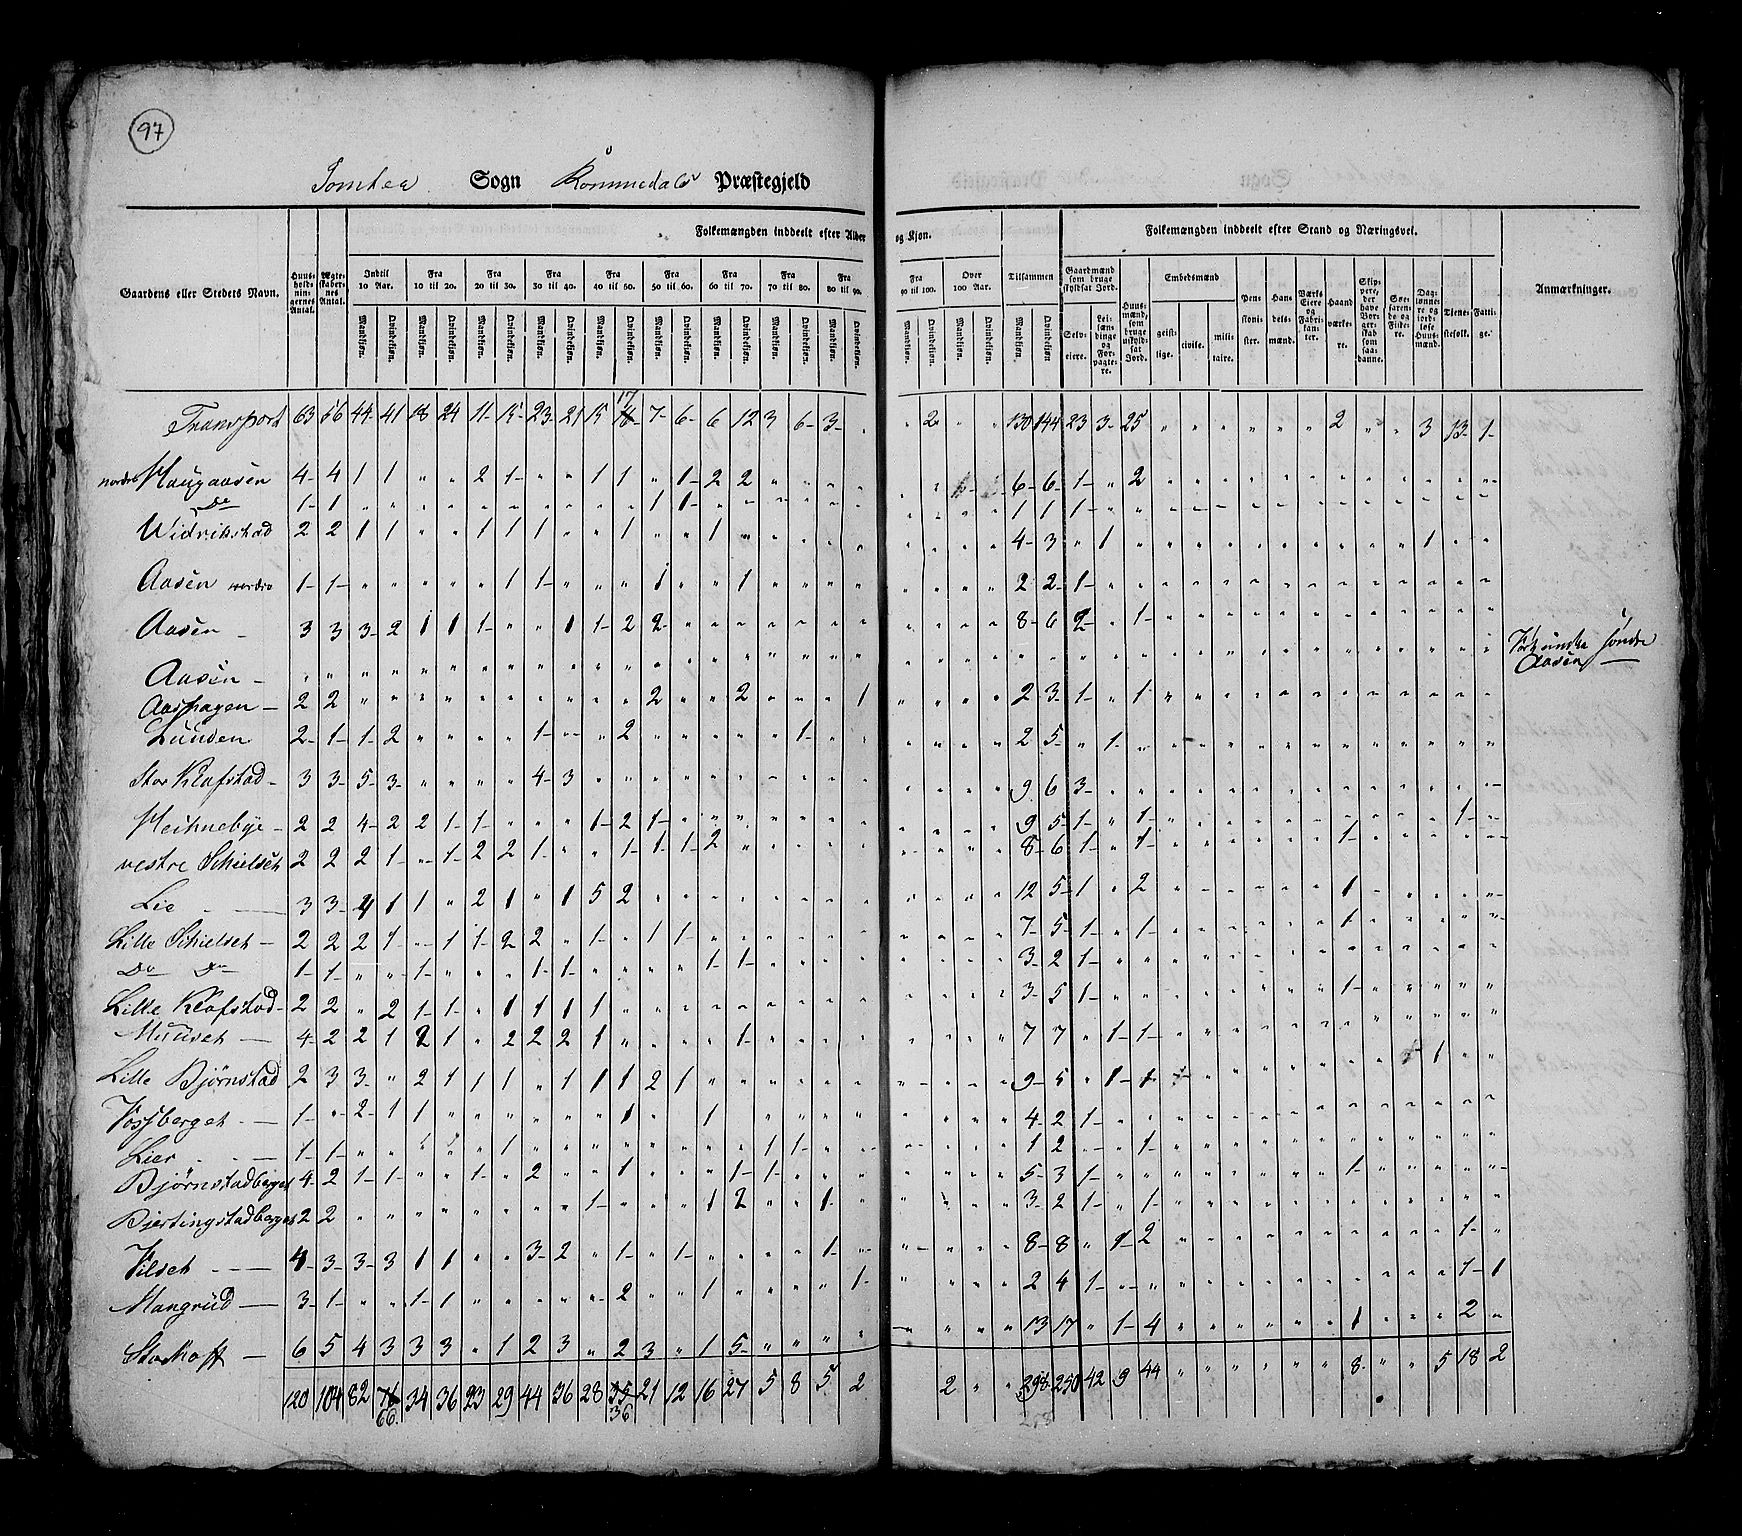 97
Tomter Sogn Rommedals Præstegjeld
Folkemængden inddeelt efter Alder og Kjøn. Folkemængden inddeelt efter Stand og Næringsvei.
Gaardens eller Stedets Navn. Huus-holdnin-gernes Antal. Ægte-skaber-nes Antal. Indtil 10 Aar. Fra 10 til 20. Fra 20 til 30. Fra 30 til 40. Fra 40 til 50. Fra 50 til 60. Fra 60 til 70. Fra 70 til 80. Fra 80 til 90. Fra 90 til 100. Over 100 Aar. Tilsammen Gaardmænd som bruge skyldsat Jord. Huus-mænd, som bruge uskyld-sat Jord. Embedsmænd Pen-sioni-ster. Han-dels-mænd. Værks Eiere og Fabri-kan-ter. Haand-værke-re. Skip-pere, der have Bor-ger-skab som saa-danne. Søe-faren-de og Fiske-re. Dag-lønne-re og jord-løse Huus-mænd. Tjene-stefolk. Fatti-ge. Anmærkninger.
Mandkjøn. Qvindekjøn. Selv-eiere. Lei-læn-dinge og For-pagte-re. geist-lige. civile. mili-taire.
Transport 63 56 44 41 18 24 11 15 23 21 15 17 7 6 6 12 3 6 3 " " 2 " " 130 144 23 3 25 " " " " " " 2 " " 3 13 1
nordre Haugaasen 4 4 1 1 " " 2 1 " " 1 1 " 1 2 2 " " " " 6 6 1 " 2
do 1 1 " " " " " " " " " " 1 1 " " " " " " 1 1 1
Widrikstad 2 2 1 1 " " 1 1 1 " " 1 " " 1 " " " " " 4 3 " 1 " 1
Aasen nordre 1 1 " " " " " 1 1 " " " 1 " " 1 " " " " 2 2 1
Aasen 3 3 3 2 1 1 1 " " 1 1 2 2 " " " " " " " 8 6 2 " 1
Aasen søndre
Aasen
Aashagen 2 2 " " " " " " " " " " 2 " " 2 " " " 1 2 3 1 " 1
Lunden 2 1 1 2 " " " " 1 " " 2 " " " " " 1 " " 2 5 " 1
Stor Klafstad 3 3 5 3 " " " " 4 3 " " " " " " " " " " 9 6 3
Heitnebye 2 2 4 2 2 1 1 " " " 1 2 1 " " " " " " " 9 5 1 " 1 1
vestre Schielset 2 2 2 1 " 1 2 2 1 " " 1 1 1 2 " " " " " 8 6 1 " 1 1
Lie 3 3 4 1 1 " 2 1 " 1 5 2 " " " " " " " " 12 5 1 " 2 1
Lille Schielset 2 2 2 1 " 1 1 2 2 " 1 " 1 1 " " " " " " 7 5 1 " 1 1
Do Do 1 1 " " 1 " " " 1 1 " " " " 1 1 " " " " 3 2 1
Lille Klafstad 2 2 " 2 1 1 " 1 1 1 1 " " " " " " " " " 3 5 1 1
Muuset 4 2 2 1 2 1 " 2 2 2 1 " " " " 1 " " " " 7 7 " 1 1
Lille Bjørnstad 2 3 3 " 2 1 1 1 " 1 1 1 2 1 " " " " " " 9 5 " 1 1 1
Fossberget 1 " 2 1 1 " " " " " " 1 " " 1 " " " " " 4 2 1
Lier 1 1 " " " " " 1 " " " " " " " " 1 1 " " 1 2 " " 1
Bjørnstadberget 4 2 1 1 " " 1 " 2 " " 1 " " " 1 1 " " " 5 3 1 1
Bjertingstadberget 2 2 " " " " " " " " 1 " " " 1 2 " " 1 " 3 2 1 " 1
Vilset 4 3 3 3 1 1 " " 3 2 " 1 " 1 " " " " 1 " 8 8 " 1 2 1
Mangrud 3 1 " " 1 1 " " " " " 2 " " 1 " " " " 1 2 4 1 1 1
Storhoff 6 5 4 3 3 3 " 1 2 3 " 2 3 " 1 5 " " " " 13 17 " 1 4 1 2
120 104 82 76 34 36 23 29 44 36 28 35 21 12 16 27 5 8 5 2 2 " " 298 250 42 9 44 8 5 18 2
66 36 258